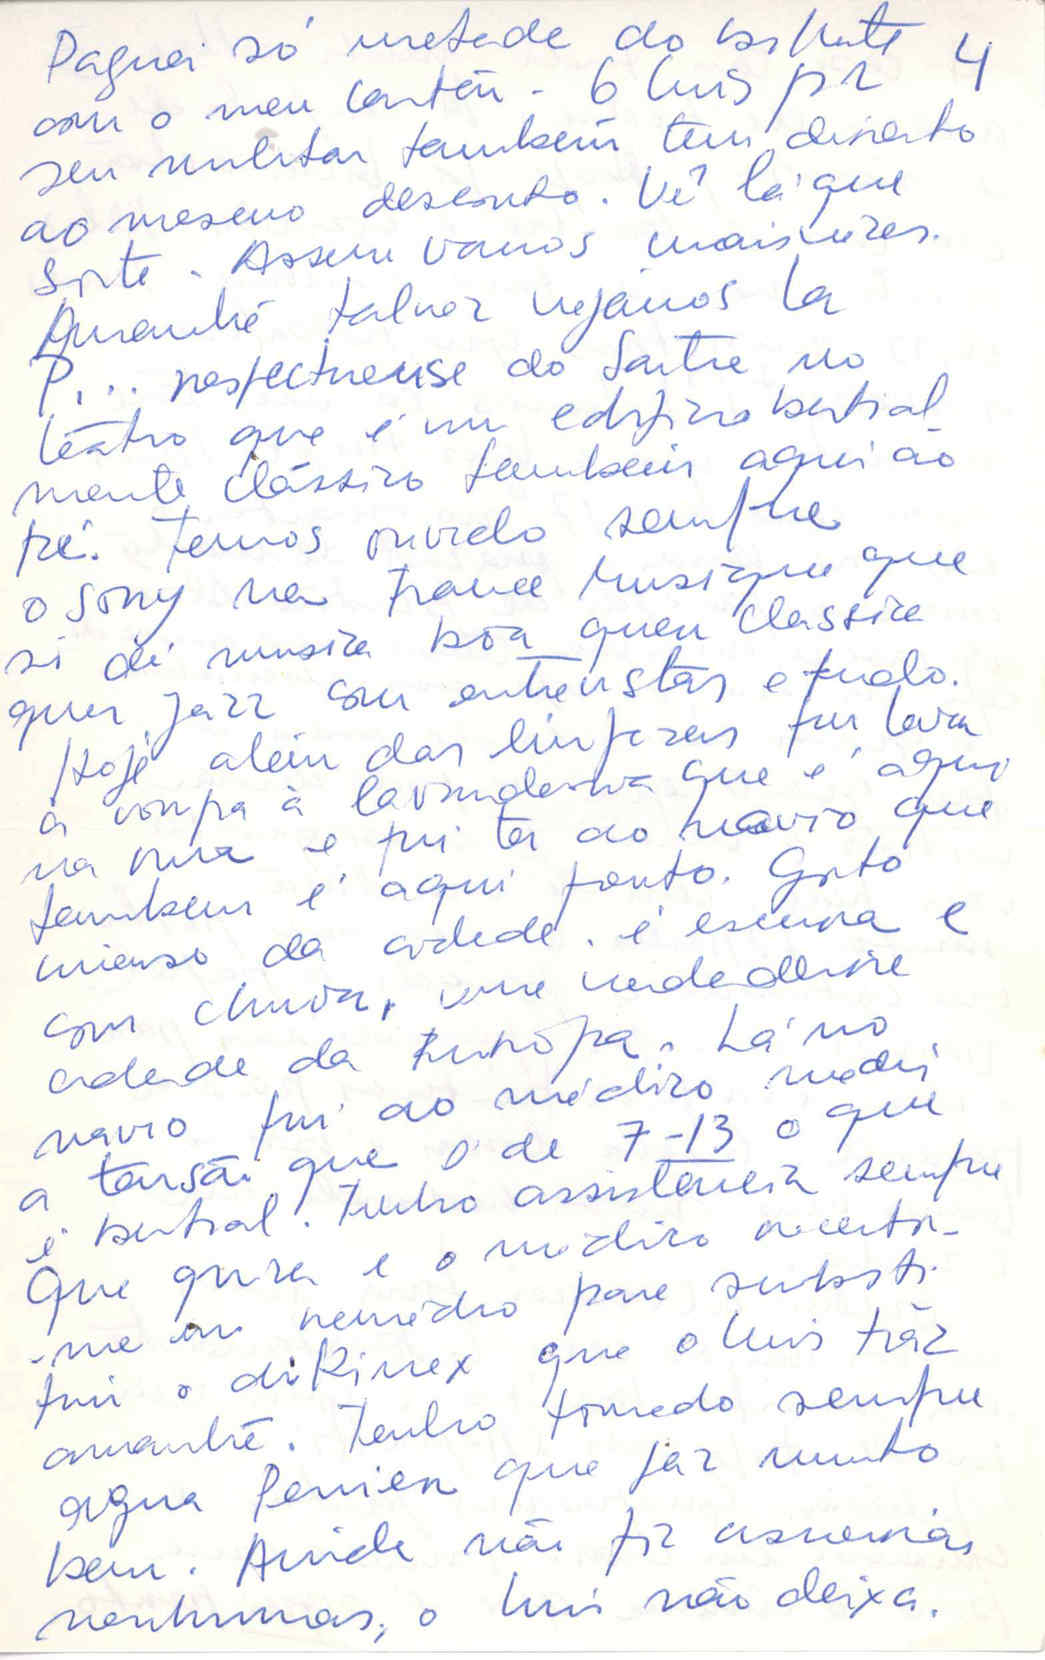 Paguei só metade do bilhete 4
com o meu cartão. O Luis por
ser militar também tem direito
ao mesmo desconto. Vê lá que
sorte. Assim vamos mais vezes.
Amanhã talvez vejamos la
P... respectueuse do Sartre no
teatro que é um edificio bestial
mente clássico também aqui ao
pé. Temos ouvido sempre
o Sony na France Musique que
só dá musica boa quer classica
quer jazz com entrevistas e tudo.
Hoje além das limpezas fui levar
a roupa à lavanderia que é aqui
na rua e fui ter ao navio que
tambem é aqui perto. Gosto
imenso da cidade. é escura e
com chuva, uma verdadeira
cidade da Europa. Lá no
navio fui ao médico medi
a tensão que é de 7-13 o que
é bestial. Tenho assistência sempre
que quiser e o médico receitou-
-me um remédio para substi
tuir o diRinex que o Luis tráz
amanhã. Tenho tomado sempre
agua Perrier que faz muito
bem. Ainda não fiz asneiras
nenhumas, o Luis não deixa.